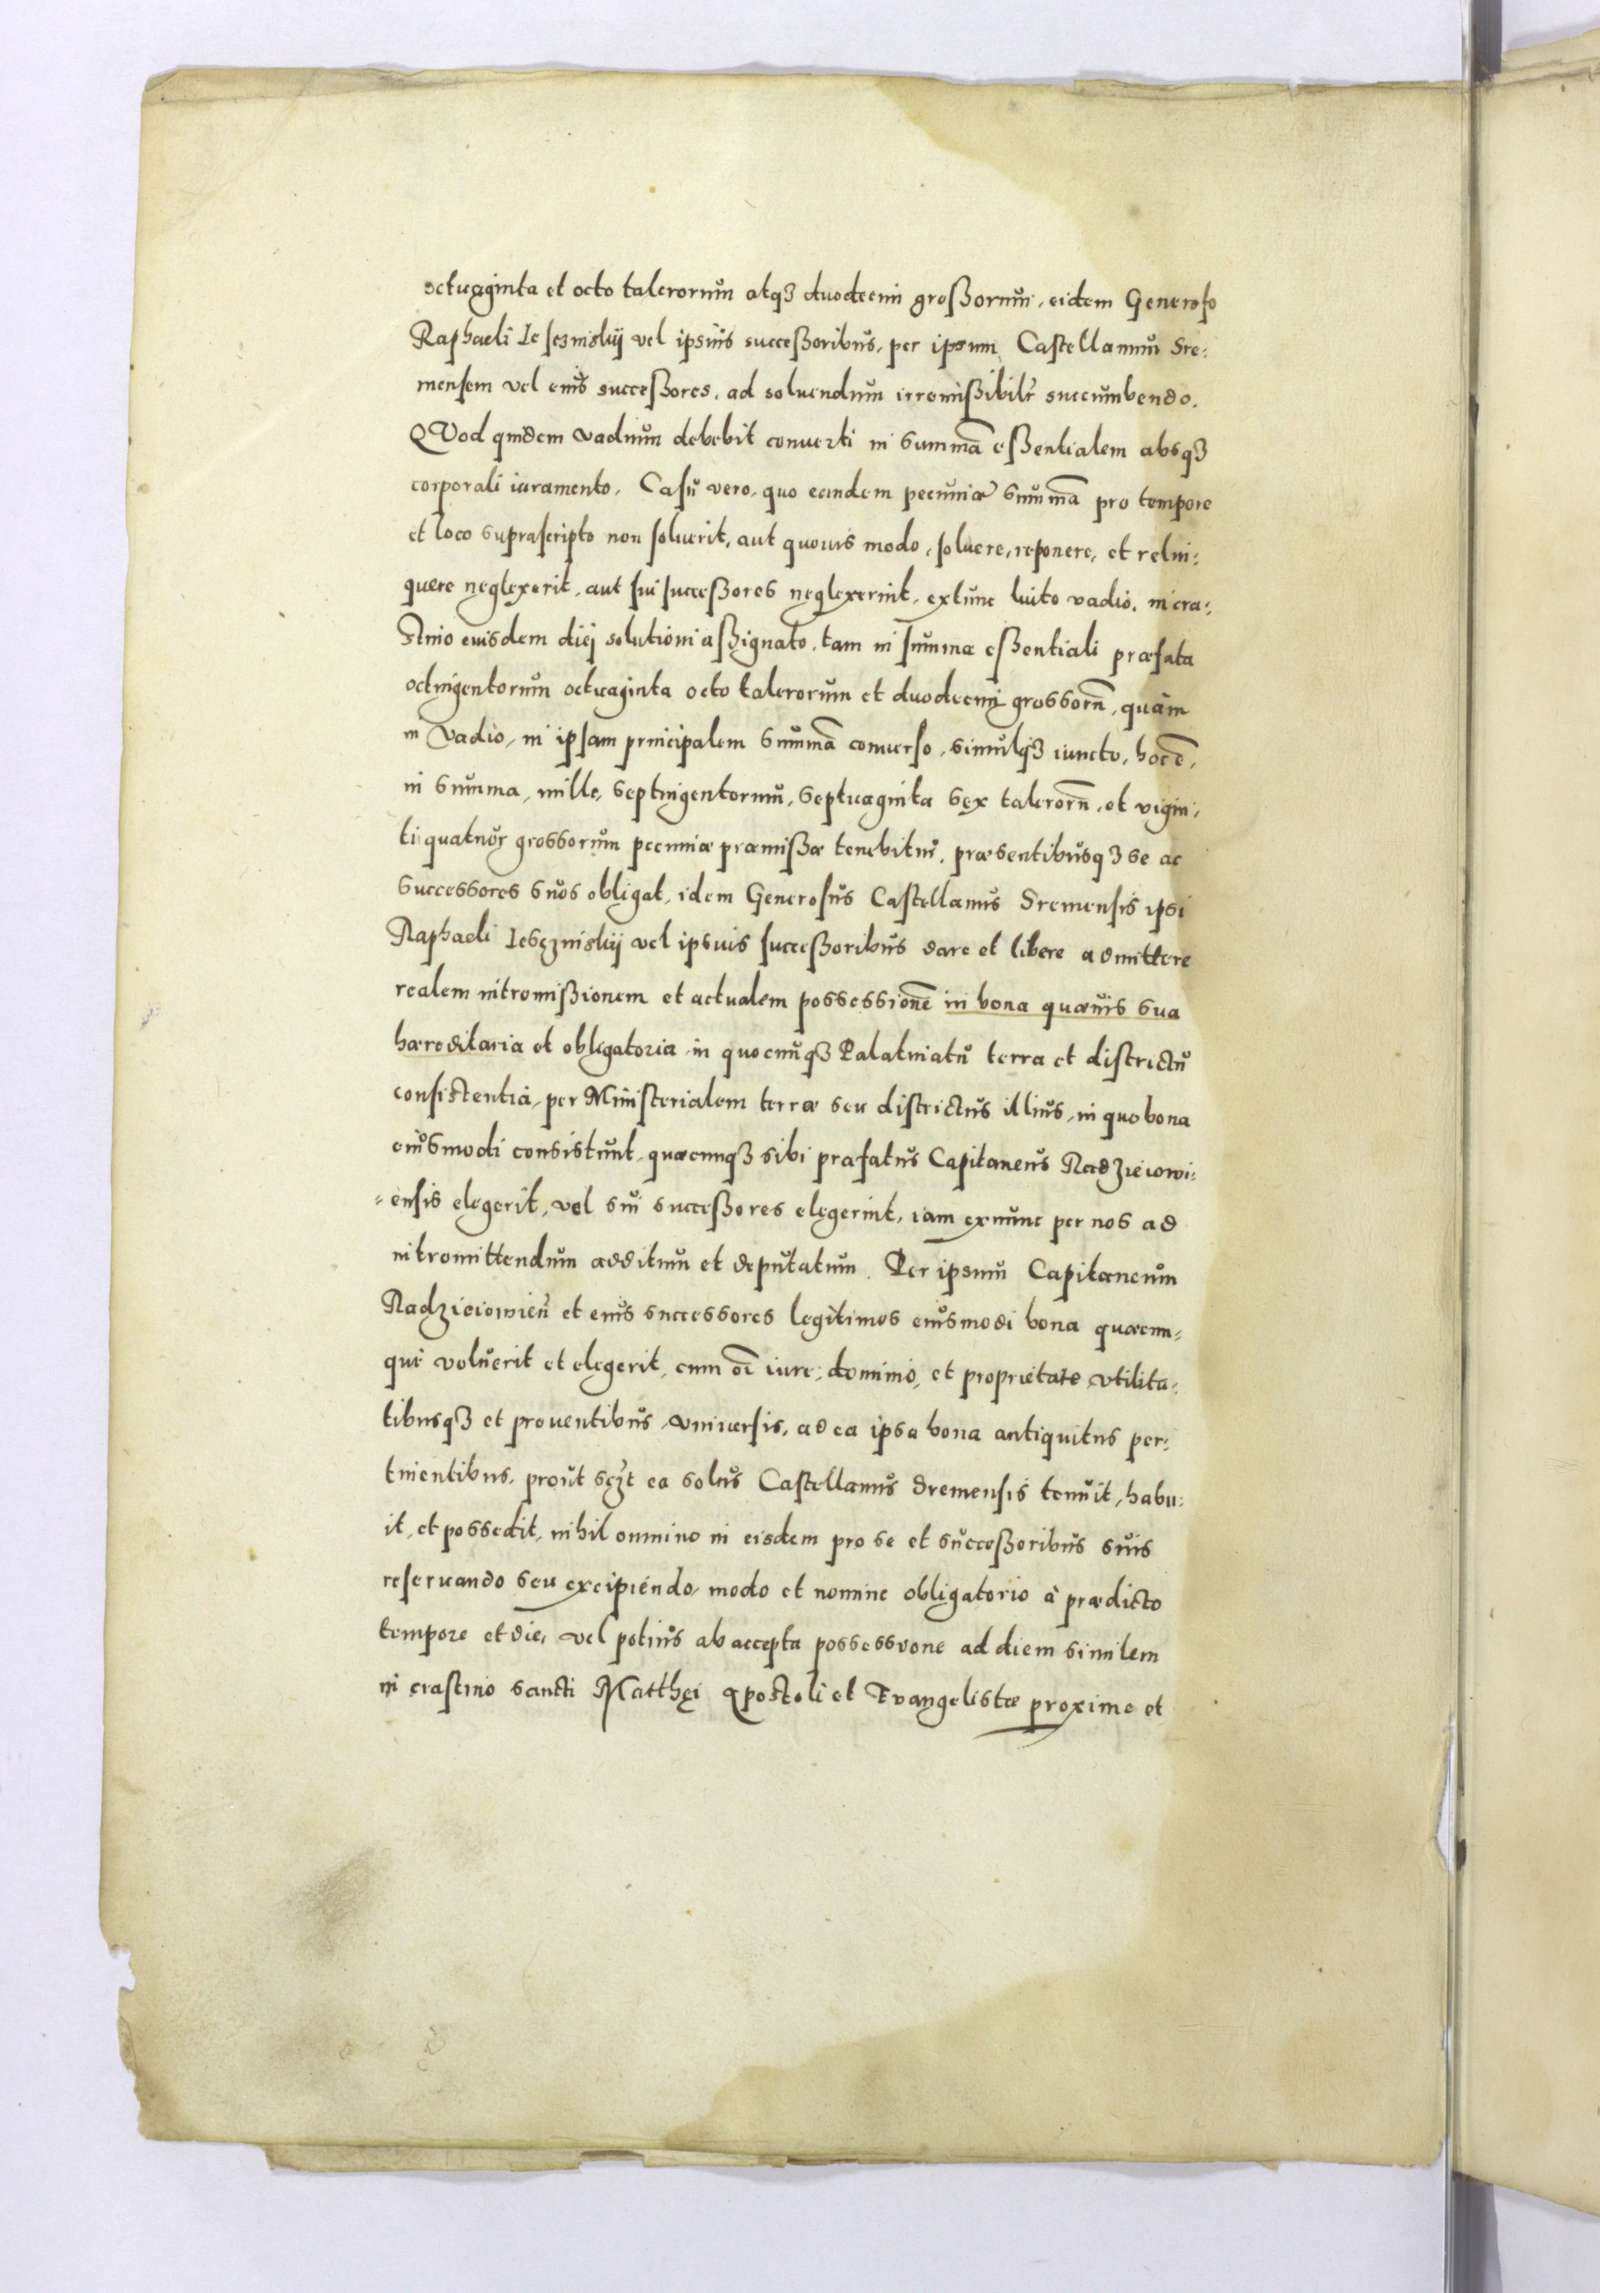 octuaginta et octo talerorum atqꝫ duodecim großorum, eidem Generoso
Raphaeli Lesczinskij vel ipsius sucçeßoribus, per ipsum Castellanum Sre:
mensem vel eius successores, ad soluendum irremißibilr̃ succumbendo.
QVod quidem vadium debebit conuerti in summã eßentialem absqꝫ
corporali iuramento. Casu vero, quo eandem pecuniæ summã pro tempore
et loco suprascripto non soluerit, aut quouis modo, soluere, reponere, et relin:
quere neglexerit, aut sui succeßores neglexerint, extunc luito vadio, in cra:
stino eiusdem diej solutioni aßignato, tam in summa eßentiali præfata
octingentorum octuaginta octo talerorum et duodecim grossorũ, quàm
in vadio, in ipsam principalem summã conuerso, simulqꝫ iuncto, hoc ẽ,
in summa, mille, septingentorum, septuaginta sex talerorũ, et vigin:
ti quatuor grossorum pecuniæ præmißæ tenebitur, præsentibusqꝫ se ac
successores suos obligat, idem Generosus Castellanus Sremensis ipsi
Raphaeli Lesczinskij vel ipsius succeßoribus dare et libere admittere
realem intromißionem et actualem possessionẽ in bona quæuis sua
hæreditaria et obligatoria in quocunqꝫ Palatinatu terra et districtu
consistentia, per Ministerialem terræ seu districtus illius, in quo bona
eiusmodi consistunt, quæcunqꝫ sibi præfatus Capitaneus Radzieiowi:
ensis elegerit, vel sui succeßores elegerint, iam exnunc per nos ad
intromittendum additum et deputatum. Per ipsum Capitaneum
Radzieiowieñ et eius successores legitimos eiusmodi bona quæcun=
que voluerit et elegerit, cum oĩ iure, dominio, et proprietate vtilita:
tibusqꝫ et prouentibus vniuersis, ad ea ipsa bona antiquitus per:
tinentibus, prout sczt ea solus Castellanus Sremensis tenuit, habu:
it, et possedit, nihil omnino in eisdem pro se et succeßoribus suis
reseruando seu excipiendo, modo et nomine obligatorio à prædicto
tempore et die, vel potius ab accepta possessione ad diem similem
in crastino sancti Matthęi Apostoli et Euangelistæ proxime et